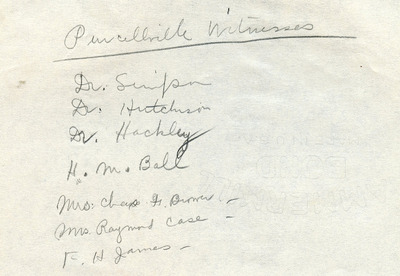 Purcellville Witnesses
Dr. Simpson
Dr. Hutchison
Dr. Hackley
H. M. Ball
Mrs. Chas F. Brown –
Mrs. Raymond Case –
F. H. James –